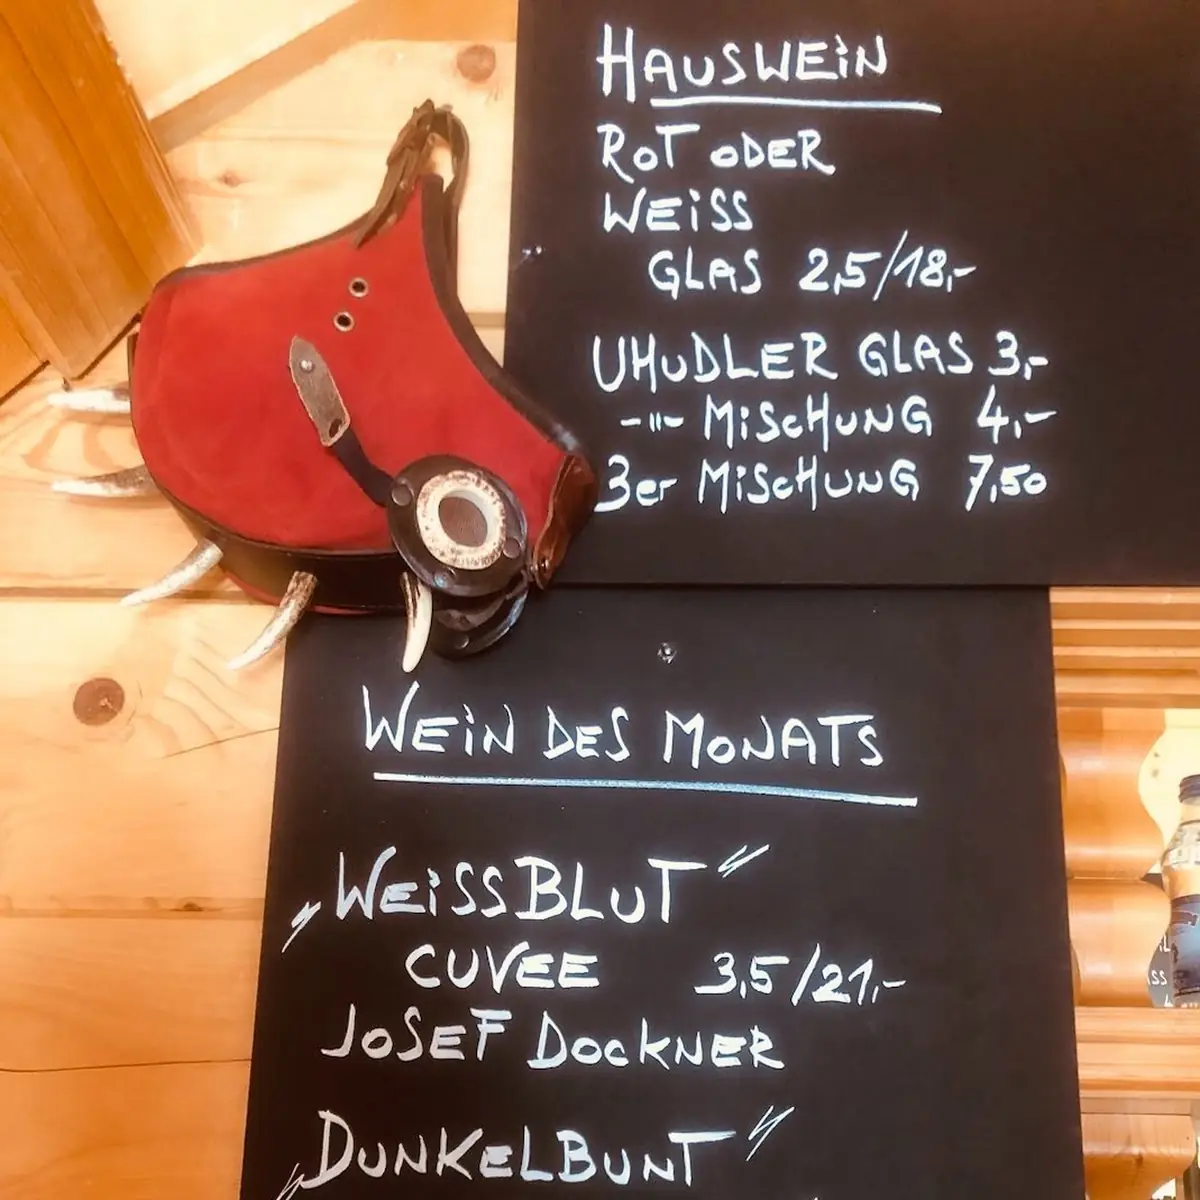 HAUSWEiN
ROT ODER
WEiSS
GLAS 2,5/18,-
UHUDLER GLAS 3,-
-"- MiSCHUNG 4,-
3er MiSCHUNG 7,50
WEiN DES MONATS
„WEiSSBLUT"
CUVEE 3,5/21,-
JOSEF DOCKNER
„DUNKELBUNT"